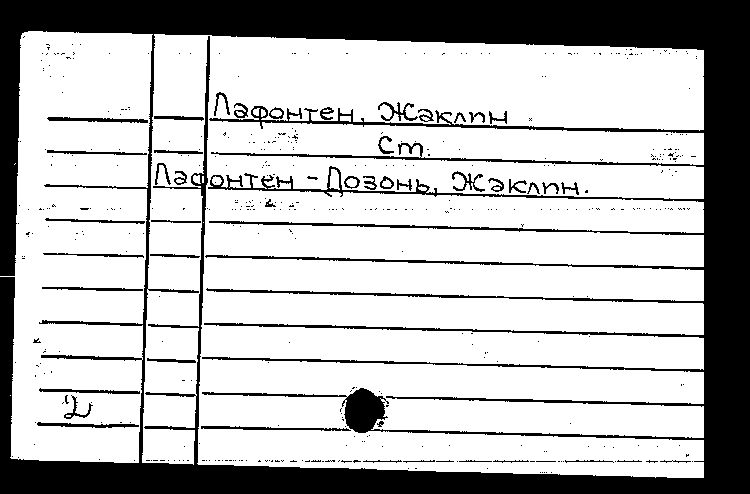 Лафонтен, Жаклин
Ст.
Лафонтен - Дозонь, Жаклин.